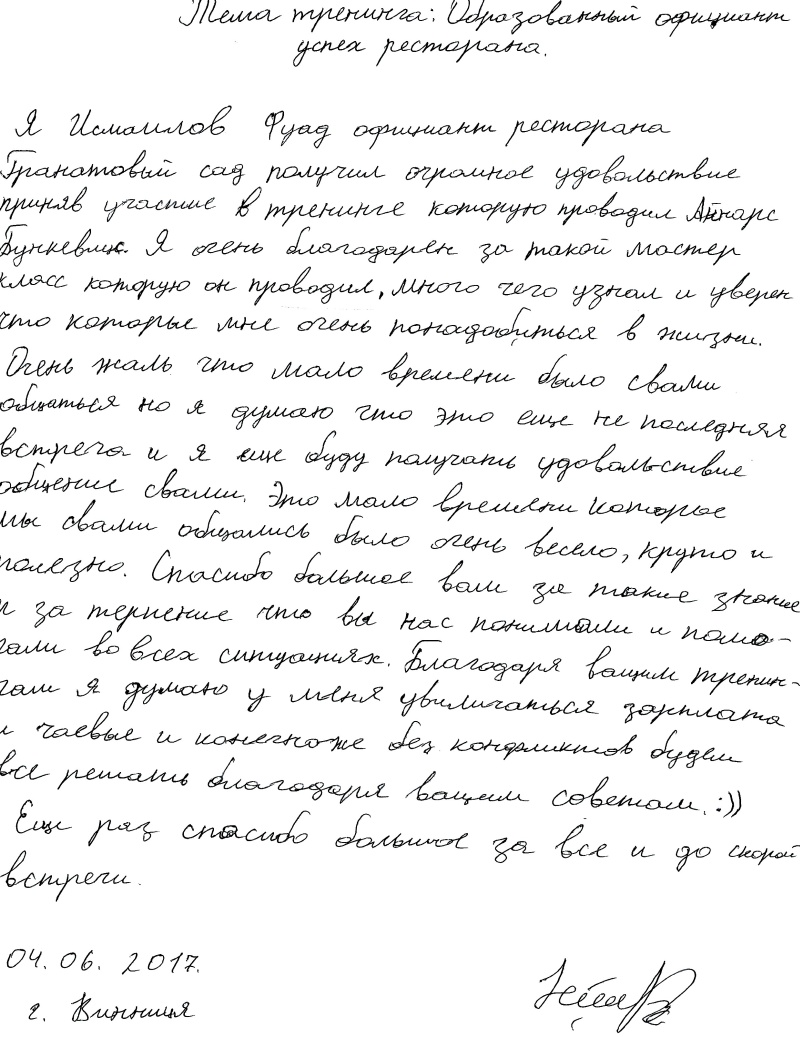 Тема тренинга: Образованный официант
успех ресторана.
Я Исмаилов Фуад официант ресторана
Гранатовый сад получил огромное удовольствие
приняв участие в тренинге которую проводил Айнарс
Бункевич. Я очень благодарен за такой мастер
класс которую он проводил, много чего узнал и уверен
что которые мне очень понадобиться в жизни.
Очень жаль что мало времени было свами
общаться но я думаю что это еще не последняя
встреча и я еще буду получать удовольствие
общение свами. Это мало времени которое
мы свами общались было очень весело, круто и
полезно. Спасибо большое вам за такие знание
и за терпение что вы нас понимали и помо-
гали во всех ситуациях. Благодаря вашим тренин-
гам я думаю у меня увиличаться зарплата
и чаевые и конечноже без конфликтов будем
все решать благодаря вашем советам. :))
Еще раз спасибо большое за все и до скорой
встречи.
04.06. 2017.
г. Винница